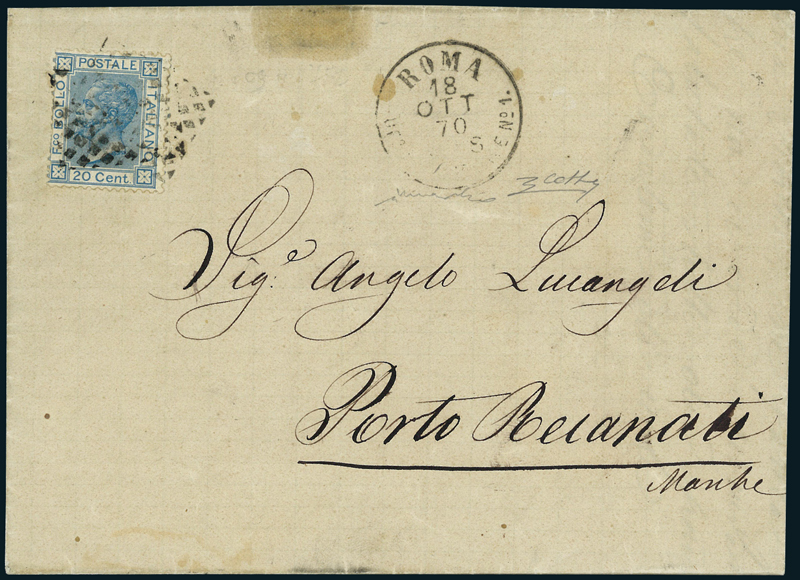 POSTALE
Fco BOLLO
ITALIANO
20 Cent.
ROMA
18
OTT
70
S
Sig.e Angelo Lucangeli
Porto Recanati
Marche